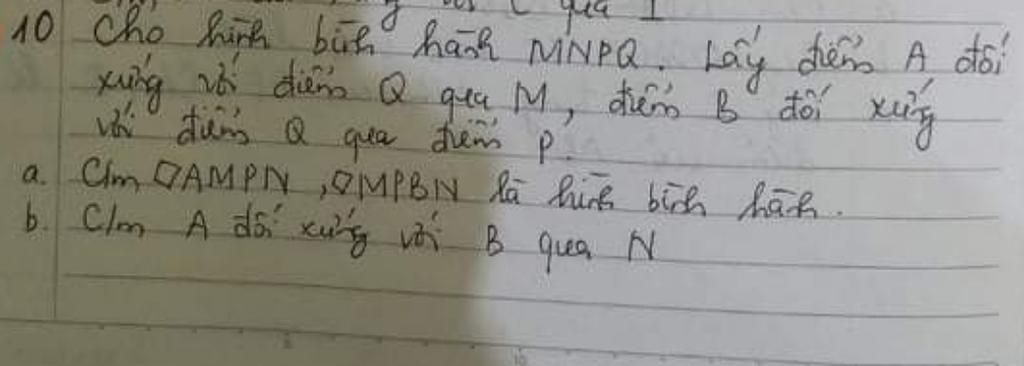 với C qua I
10 Cho hình bình hành MNPQ. Lấy điểm A đối
xứng với điểm Q qua M, điểm B đối xứng
với điểm Q qua điểm P.
a. C/m ▱AMPN, ▱MPBN là hình bình hành.
b. C/m A đối xứng với B qua N